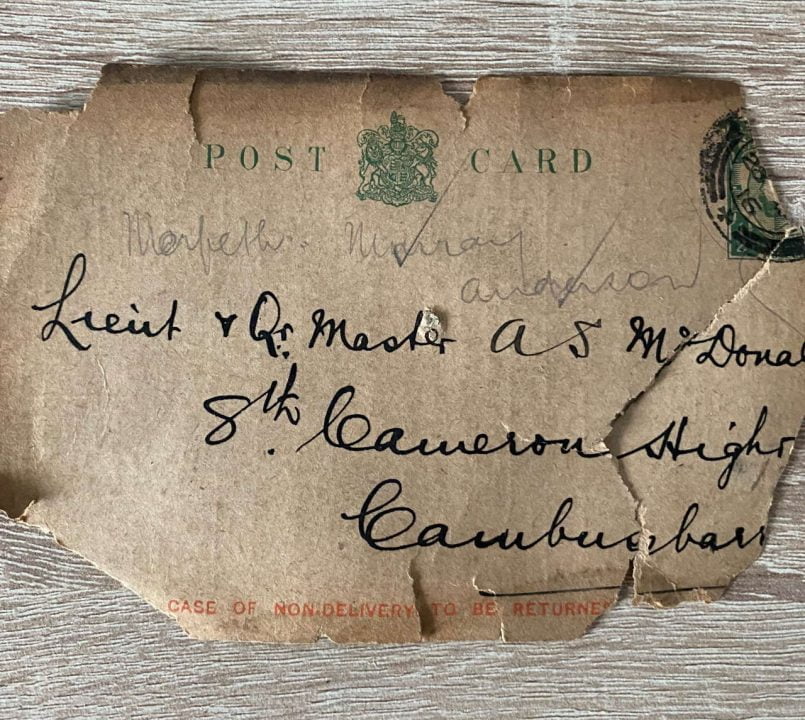 POST CARD
Morpeth. Murray
anderson
Lieut & Qr. Master A S McDonal
8th Cameron Highr
Cambusbarr
CASE OF NON-DELIVERY TO BE RETURNE